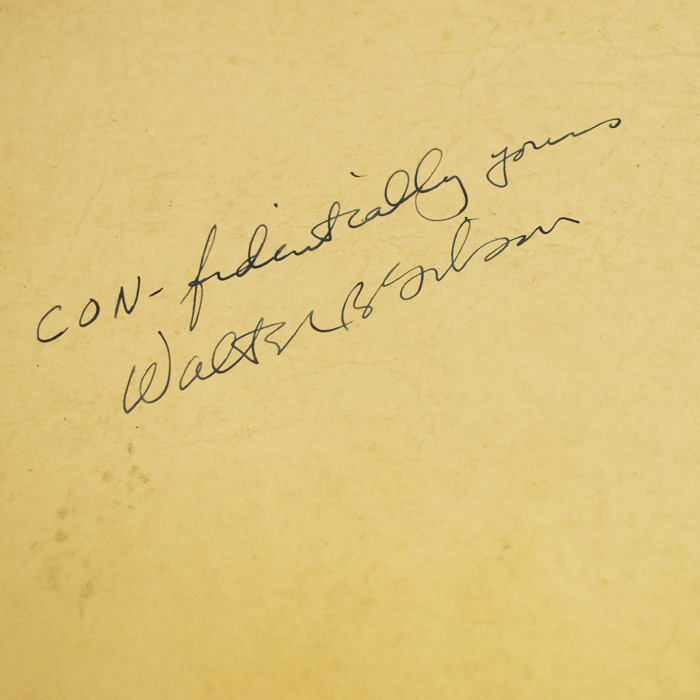 CON-fidentially yours
Walter B Gibson